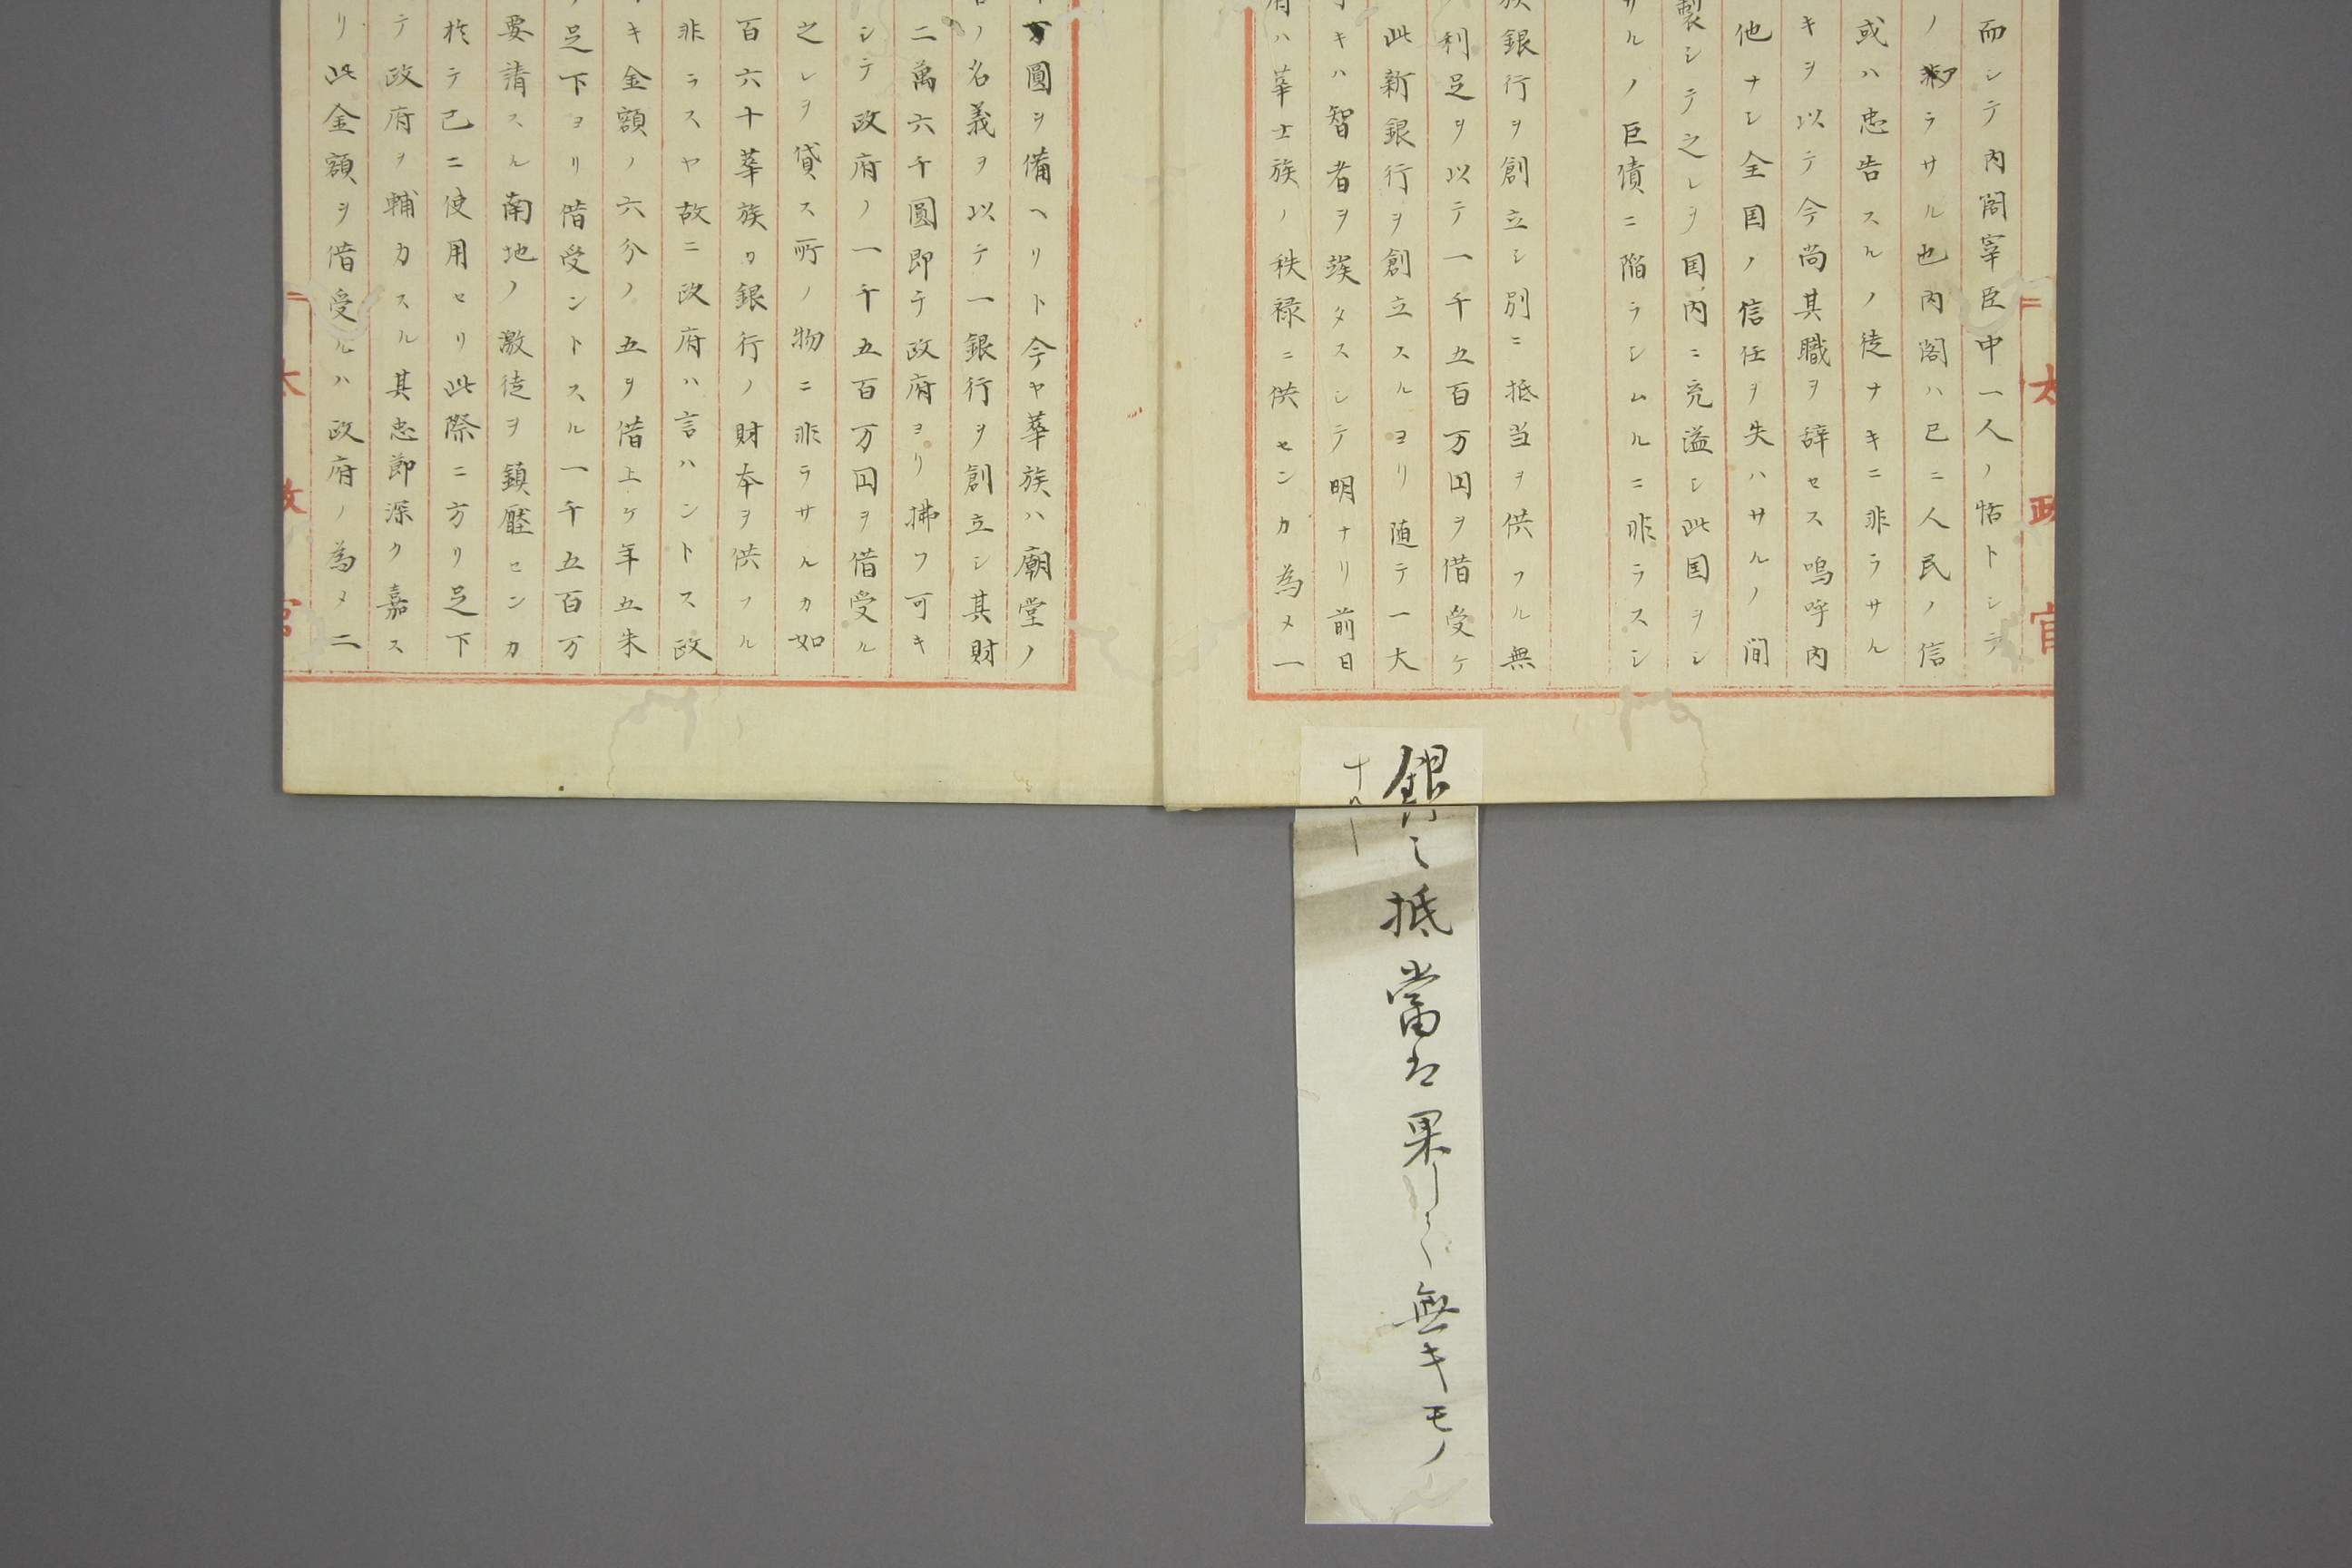 而シテ内閣宰臣中一人ノ恬トシテ
ラサル也内閣ハ已ニ人民ノ信
或ハ忠告スルノ徒ナキニ非ラサル
キヲ以テ今尚其職ヲ辞セス嗚呼内
他ナシ全国ノ信任ヲ失ハサルノ間
製シテ之レヲ国内ニ充溢シ此国ヲシ
サルノ巨債ニ陥ラシムルニ非ラスシ
族銀行ヲ創立シ別ニ抵当ヲ供フル無
利足ヲ以テ一千五百万円ヲ借受ケ
此新銀行ヲ創立スルヨリ随テ一大
キハ智者ヲ竢タスシテ明ナリ前日
府ハ華士族ノ秩禄ニ供センカ為メ一
太政官
万圓ヲ備ヘリト今ヤ華族ハ廟堂ノ
ノ名義ヲ以テ一銀行ヲ創立シ其財
二萬六千圓即テ政府ヨリ拂フ可キ
シテ政府ノ一千五百万円ヲ借受ル
之レヲ貸ス所ノ物ニ非ラサルカ如
百六十華族カ銀行ノ財本ヲ供フル
非ラスヤ故ニ政府ハ言ハントス政
キ金額ノ六分ノ五ヲ借上ケ年五朱
足下ヨリ借受ントスル一千五百万
要請スル南地ノ激徒ヲ鎮壓センカ
於テ已ニ使用セリ此際ニ方リ足下
テ政府ヲ輔カスル其忠節深ク嘉ス
リ此金額ヲ借受ルハ政府ノ為メ二
太政官
銀行之抵當ハ果シテ無キモノ